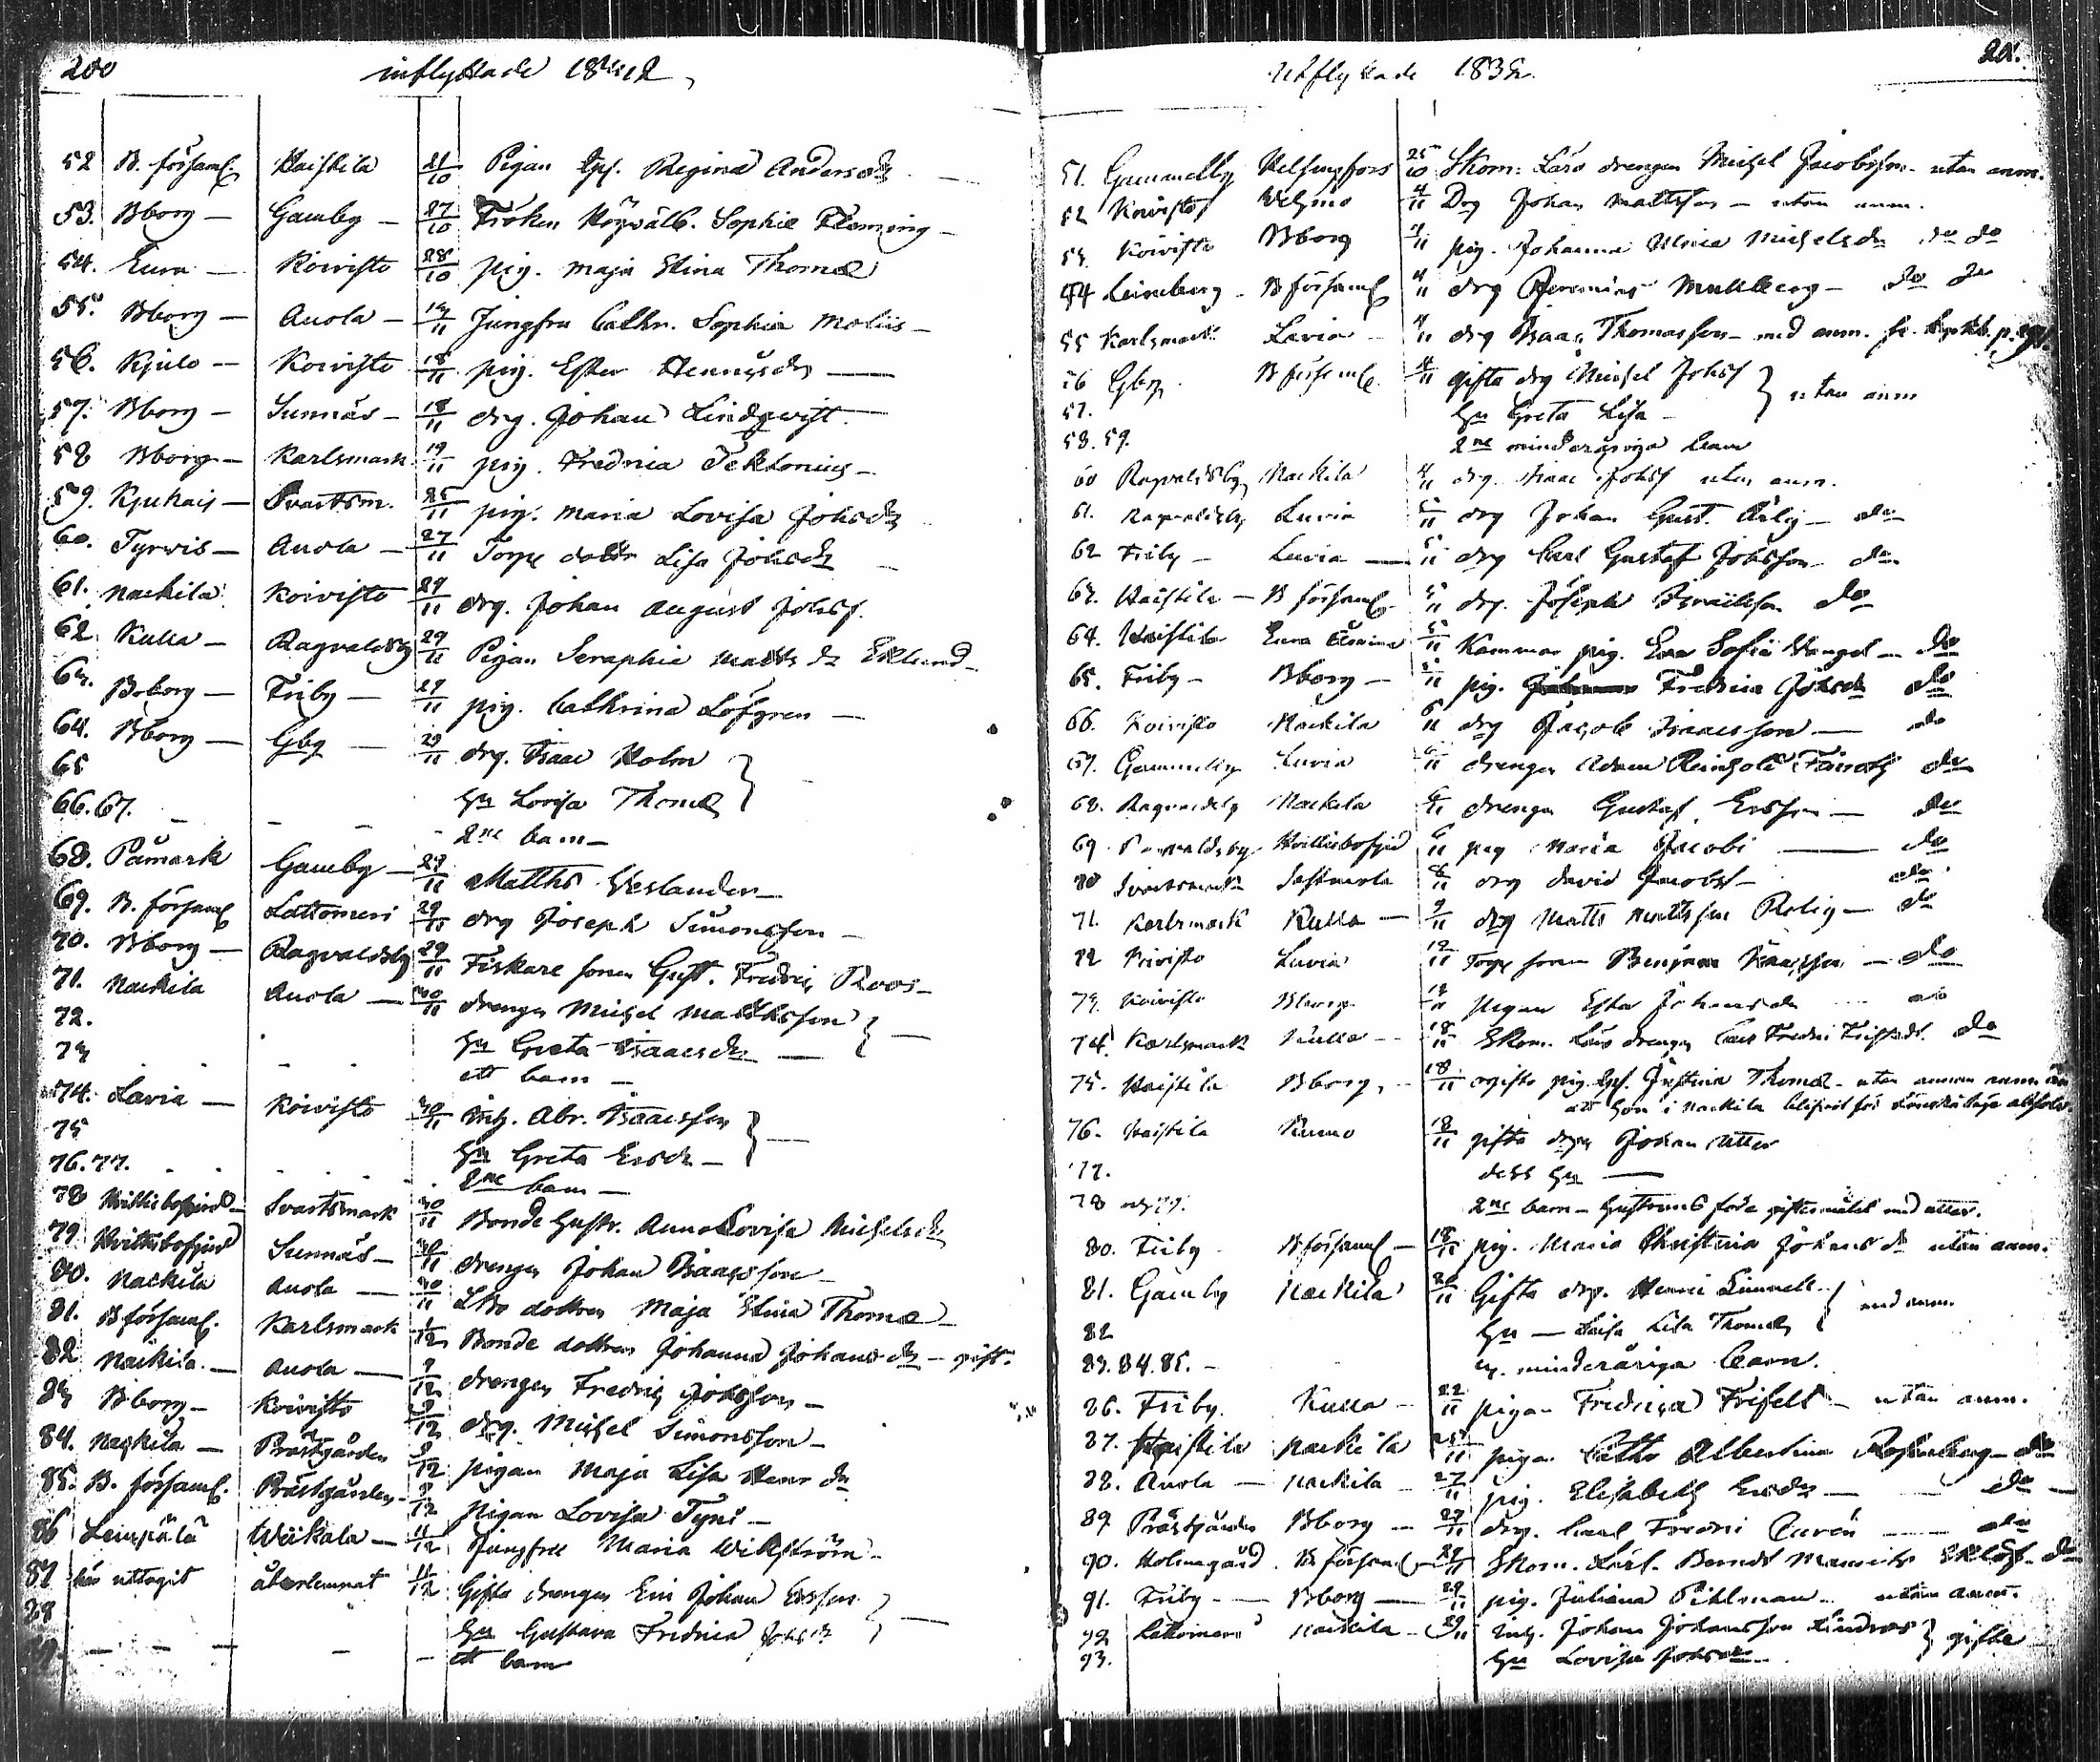 200 inflyttade 18
52 B. församl. Haistila 21/10 Pigan Regina Andersdr
53. Bborg — Gamby — 27/10 Fröken Högvälb. Sophie Fleming —
54. Eura — Koivisto 28/10 pig. Maja Stina Thomæ
55. Bborg — Anola — /11 Jungfru Cathr. Sophia Molin —
56. Kjulo — Koivisto 18/11 pig. Ester Henricsdr —
57. Bborg — Sunnäs — 18/11 drg. Johan Lindqvist —
58 Bborg — Karlsmark 19/11 pig. Fredrica Tektonius —
59. Kjukais — Svartsm. 25/11 pig. Maria Lovisa Johsdr
60. Tyrvis — Anola — 27/11 Torp dottr Lisa Johsdr —
61. Nackila Koivisto 29/11 drg. Johan August Johss.
62 Kulla — Ragvaldsby 29/11 Pigan Seraphia Matts dr Eklund —
63. Bborg — Friby — 29/11 pig. Cathrina Löfgren —
64. Bborg — Gbg — 29/11 drg. Isaac Holm
65 Hu Lovisa Thomæ
66. 67. — — — 2ne barn —
68. Påmark Gamby — 29/11 Matths Weslander —
69. B. församl Lattomeri 29/11 drg Joseph Simonsson —
70. Bborg — Ragvaldsby 29/11 Fiskare sonen Gust. Fredric Roos —
71. Nackila Anola — 30/11 drengen Michel Matthsson
72. Hu Greta Isaacsdr —
73 ett barn —
74. Lavia — Koivisto 30/11 Inh. Abr. Isaacsson
75 Hu Greta Ersdr —
76. 77. 2ne barn —
78 Hvittisbofjerd — Svartsmark 30/11 Bonde hustr. Anna Lovisa Michelsdr
79 Hvittisbofjerd Sunnäs — 30/11 drengen Johan Isaacsson —
80. Nackila Anola — 30/11 dottren Maja Stina Thomæ —
81. B församl. Karlsmark 1/12 Bonde dottren Johanna Johansdr — gift.
82 Nackila. — Anola — /12 drengen Fredric Johsson —
83 Bborg — Koivisto /12 drg. Michel Simonsson —
84. Nackila — Prästgården /12 pigan Maja Lisa Henr dr
85. B. församl. Prästgården — /12 Pigan Lovisa Tyni —
86 Lempälä Wiikala — 11/12 Jungfru Maria Wikström —
87 här uttagit återlemnat 11/12 Gifta drengen Eric Johan Ersson
88 Hu Gustava Fredrica Johsdr
— — — — — ett barn
201.
Utflyttade 183
51. Gammelby Helsingfors 25/10 Skom: Lärs drengen Michel Jacobsson — utan anm.
52 Koivisto 4/11 Drg Johan Mattsson — utan anm.
53. Koivisto Bborg 4/11 pig. Johanna Ulrica Michelsdr do do
54 Leineberg — B församl 4/11 drg Jeremias Mullberg — do do
55 Karlsmark Lavia — 4/11 drg Isaac Thomasson — med anm.
56 Gbg B församl. 4/11 gifta drg Michel Johss } utan anm
57. Hu Greta Lisa —
58. 59. 2ne minderåriga barn
60 Ragvaldsby Nackila 4/11 drg. Isaac Johss utan anm.
61. Ragvaldsby Luvia 5/11 drg Johan Gust. Ärlig — do
62 Friby — Luvia — 5/11 drg Carl Gustaf Johsson do
63. Haistila — B församl 5/11 drg. Joseph Israelsson do
64. Haistila Eura 5/11 Kammar pig. Eva Sofia Wangel — do
65. Friby — Bborg — 5/11 pig. Fredrica Johsdr do
66. Koivisto Nackila 6/11 drg Jacob Isaacsson — do
67. Gammelby Luvia 6/11 drengen Adam Reinhold do
68. Ragvaldsby Nackila 6/11 drengen Gustaf Ersson — do
69. Ragvaldsby Hvittisbofjerd 6/11 pig Maria Jacobi — do
70 Svartsmark Sastmola 8/11 drg David Jacobss — do
71. Karlsmark Kulla — 9/11 drg Matts Mattsson Rolig — do
72 Koivisto Luvia 12/11 Torp sonen Benjam Isaacsson — do
73. Koivisto Bborg /11 pigan Ester Johansdr do
74. Karlsmark Kulla — 18/11 Skom. Lärs drengen Carl Fredric do
75. Haistila Bborg, — 18/11 ogifta pig. Justina Thomæ — utan annan anm. än
att hon i Nackila blifvit för
76. Haistila Kumo 18/11 gifta drgn Johan Utter
77. dess Hu —
78 och 79. 2ne barn — hustruns före giftermålet med Utter.
80. Friby B församl — 18/11 pig. Maria Christina Johans dr utan anm.
81. Gamby Nackila 20/11 Gifta drg. Henric } med anm.
82 Hu — Lisa Thomæ
83. 84. 85. — minderåriga barn.
86. Friby. Kulla — 22/11 pigan Fredrica Frifelt — utan anm.
87. Haistila Nackila 25/11 pigan Cathr Albertina Rosenberg — do
88. Anola — Nackila — 27/11 pig. Elisabeth Ersdr — do —
89. Prästgården Bborg — 29/11 drg. Carl Fredric — do
90. Holmegård. B församl — 29/11 Skom. Lärl. Berndt Mauritz Eklöf — do
91. Friby — Bborg — 29/11 pig. Juliana Pihlman — utan anm.
92 Lattomeri Nackila — 29/11 Inh. Johan Johansson Lindroos } gifte
93. Hu Lovisa Johsdr